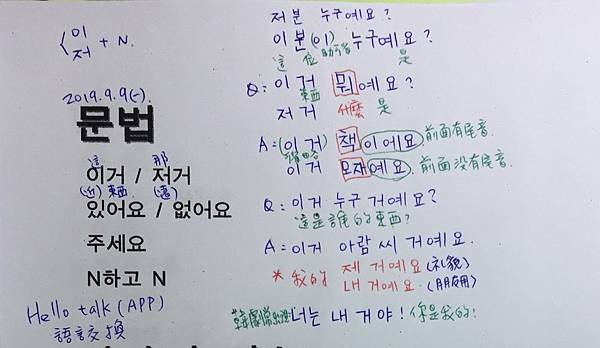 이
저 + N.
2019.9.9(一).
문법
這 那
이거 / 저거
(近) 東西 (遠)
있어요 / 없어요
주세요
N하고 N
Hello talk (APP)
語言交換
저분 누구예요?
이분(이) 누구예요?
這 位 助詞 是
Q: 이거 뭐예요?
東西
저거 什麼 是
A: (이거) 책이에요. 前面有尾音.
이거 모자예요. 前面沒有尾音.
Q: 이거 누구 거예요?
這是誰的東西?
A: 이거 아람 씨 거예요.
* 我的 제 거예요 (礼貌)
내 거예요. (朋友用)
韓劇常出現 너는 내 거야! 你是我的!